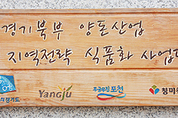 경기북부 양돈산업
지역전략 식품화 사업단
Yangju 포천